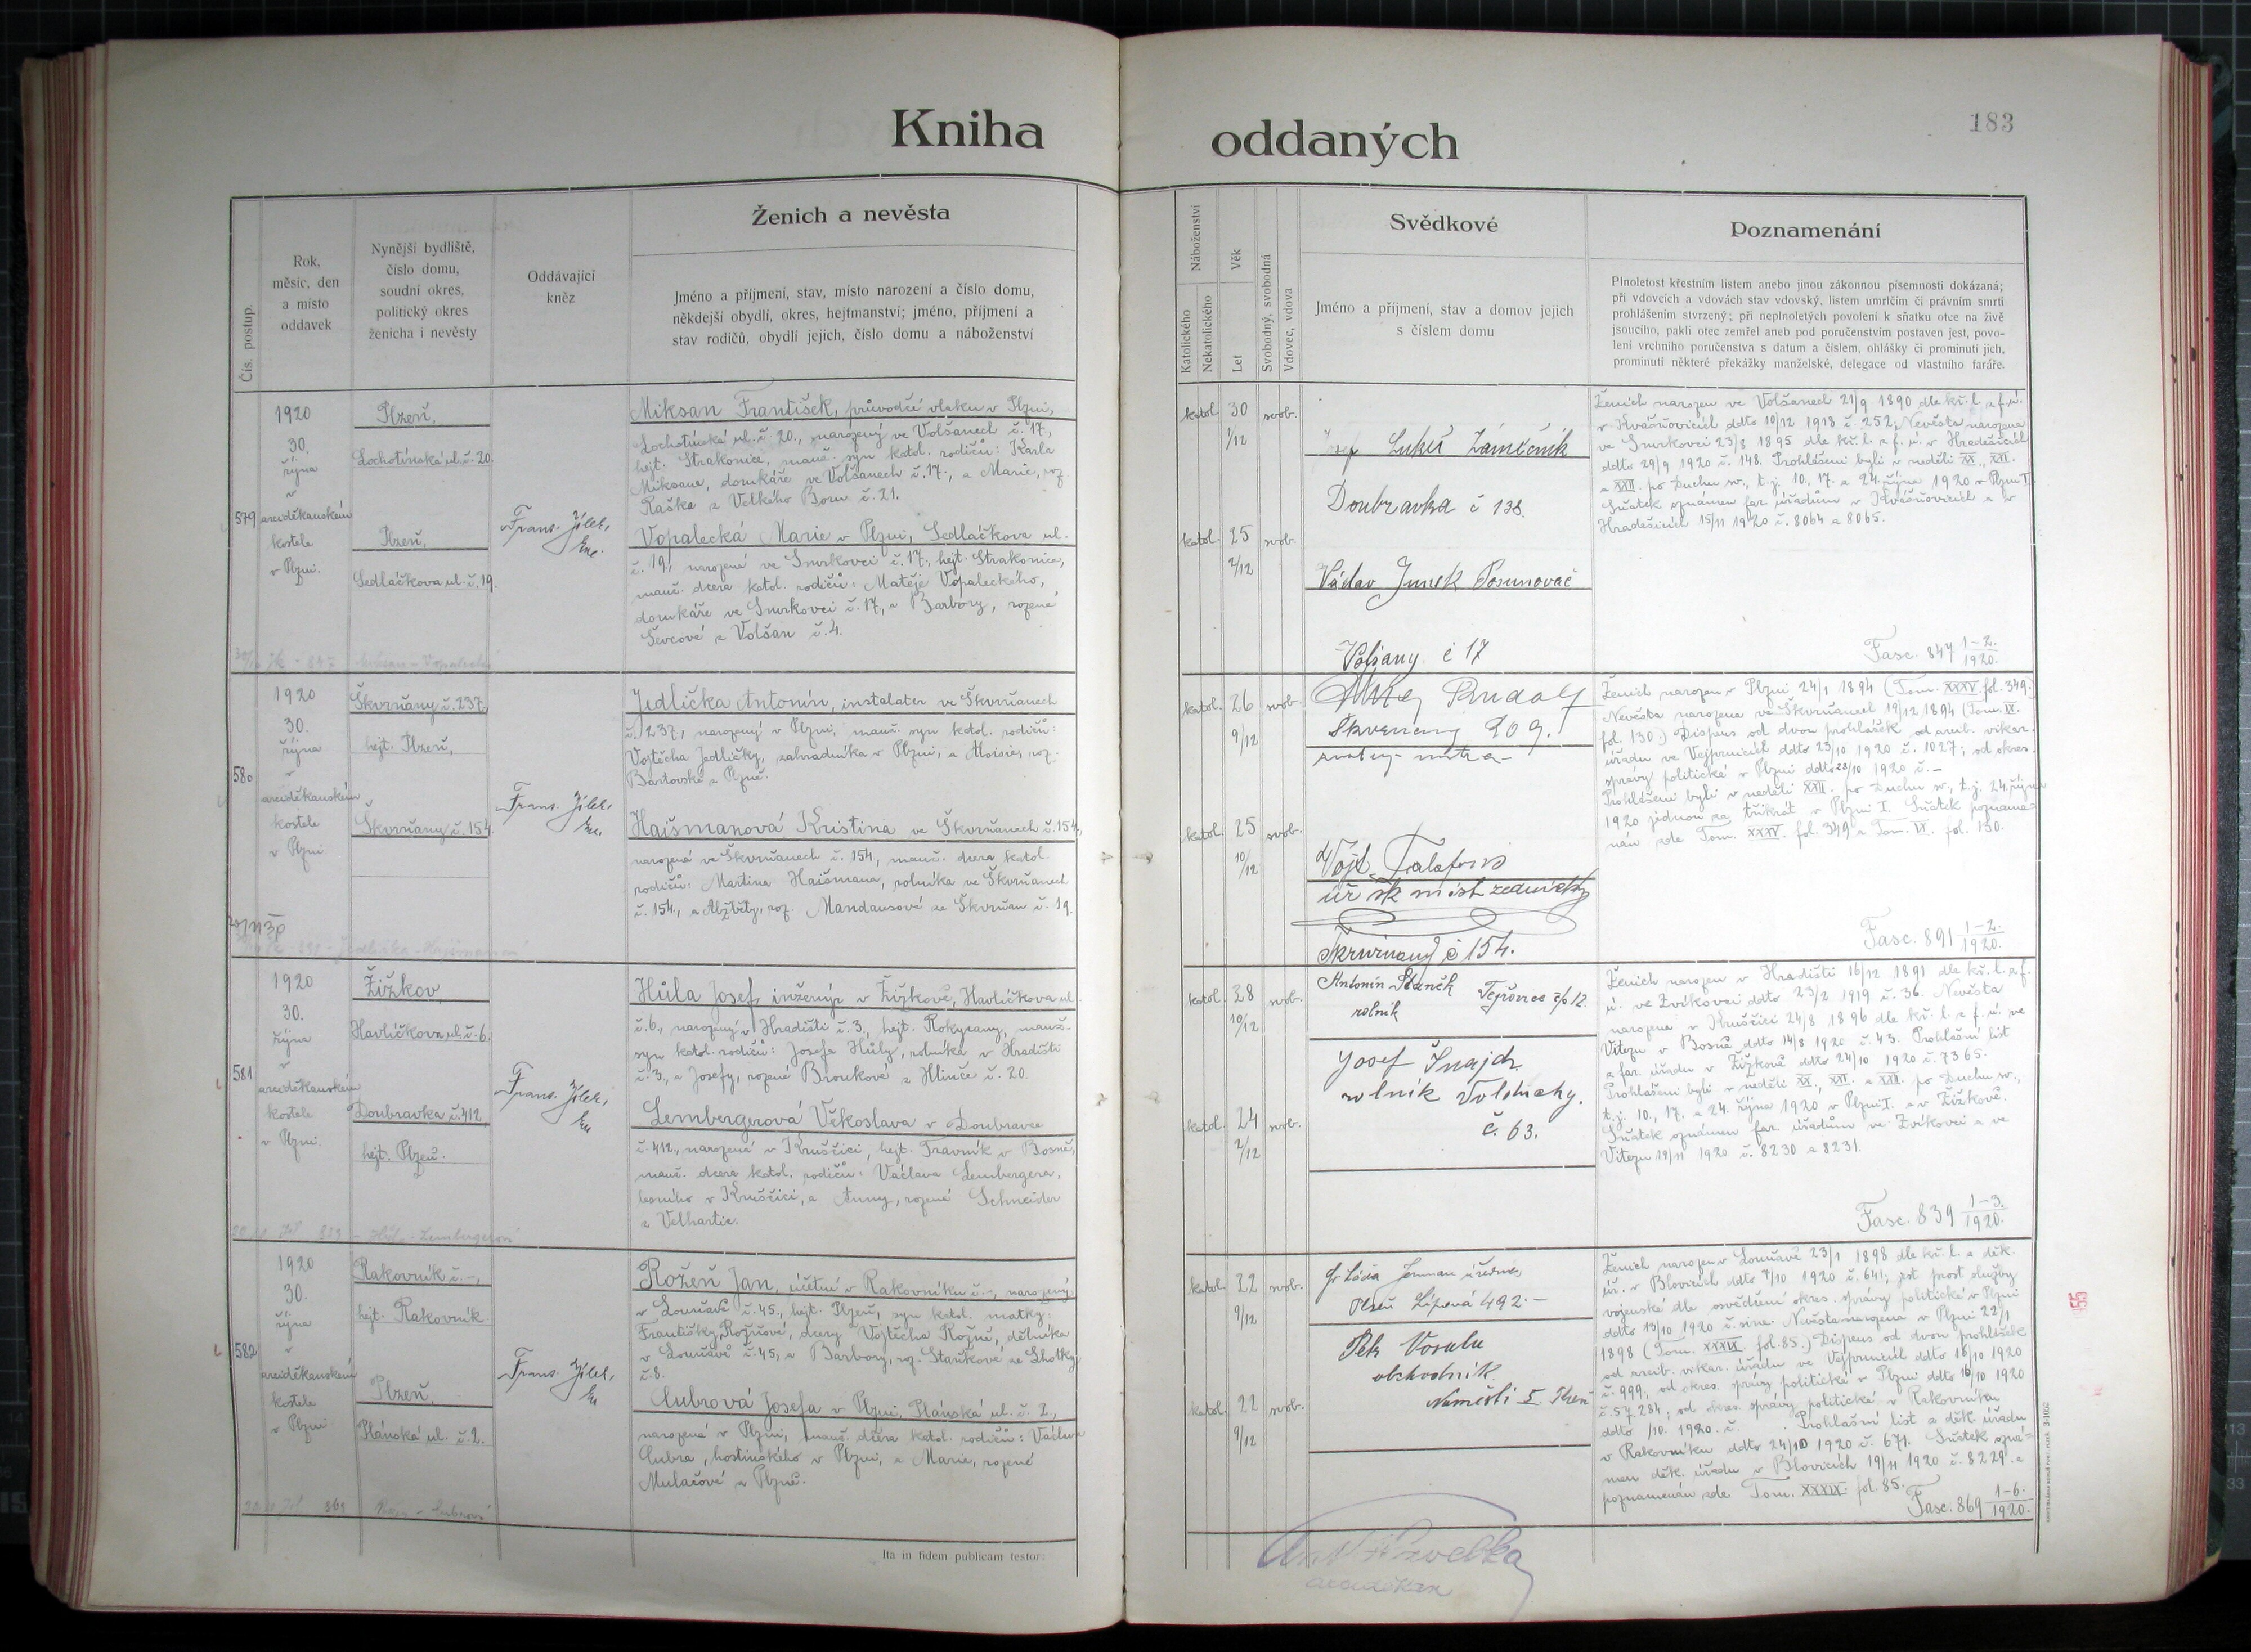 Kniha
oddaných
183
Čís. postup.
Rok,
měsíc, den
a místo
oddavek
Nynější bydliště,
číslo domu,
soudní okres,
politický okres
ženicha i nevěsty
Oddávající
kněz
Ženich a nevěsta
Jméno a příjmení, stav, místo narození a číslo domu,
někdejší obydlí, okres, hejtmanství; jméno, příjmení a
stav rodičů, obydlí jejich, číslo domu a náboženství
Náboženství
Katolického
Nekatolického
Věk
Let
Svobodný, svobodná
Vdovec, vdova
Svědkové
Jméno a příjmení, stav a domov jejich
s číslem domu
Poznamenání
Plnoletost křestním listem anebo jinou zákonnou písemností dokázaná;
při vdovcích a vdovách stav vdovský, listem umrlčím či právním smrti
prohlášením stvrzený; při neplnoletých povolení k sňatku otce na živě
jsoucího, pakli otec zemřel aneb pod poručenstvím postaven jest, povo-
lení vrchního poručenstva s datum a číslem, ohlášky či prominutí jich,
prominutí některé překážky manželské, delegace od vlastního faráře.
579
1920
30.
října
v
arciděkanském
kostele
v Plzni.
Plzeň,
Lochotínská ul. č. 20.
Plzeň,
Sedláčkova ul. č. 19.
Frant. Jílek,
Miksan František, průvodčí vlaku v Plzni,
Lochotínská ul. č. 20., narozený ve Volšanech č. 17,
hejt. Strakonice, manž. syn katol. rodičů: Karla
Miksana, domkáře ve Volšanech č. 17., a Marie, roz.
Raška z Velkého Boru č. 21.
Vopalecká Marie v Plzni, Sedláčkova ul.
č. 19, narozená ve Smrkovci č. 17., hejt. Strakonice,
manž. dcera katol. rodičů: Matěje Vopaleckého,
domkáře ve Smrkovci č. 17, a Barbory, rozené
Ševcové z Volšan č. 4.
katol. 30 svob.
1/12
katol. 25 svob.
2/12
Josef Lukš Zámečník
Doubravka č 138.
Václav Junek Posunovač
Volšany č 17
Ženich narozen ve Volšanech 21/9 1890 dle kř. l. z f. ú.
v Kvášňovicích ddto 10/12 1918 č. 252; Nevěsta narozena
ve Smrkovci 23/8 1895 dle kř. l. z f. ú. v Hradešicích
ddto 29/9 1920 č. 148. Prohlášeni byli v neděli XX., XXI.
a XXII. po Duchu sv., t. j. 10., 17. a 24. října 1920 v Plzni I.
Sňatek oznámen far. úřadům v Kvášňovicích a v
Hradešicích 15/11 1920 č. 8064 a 8065.
Fasc. 847 1-2./1920.
580
1920
30.
října
v
arciděkanském
kostele
v Plzni
Škvrňany č. 237.,
hejt. Plzeň,
Škvrňany č. 154
Frant. Jílek,
Jedlička Antonín, instalater ve Škvrňanech
č. 237., narozený v Plzni, manž. syn katol. rodičů:
Vojtěcha Jedličky, zahradníka v Plzni, a Aloisie, roz.
Bartovské z Plzně.
Haišmanová Kristina ve Škvrňanech č. 154,
narozená ve Škvrňanech č. 154, manž. dcera katol.
rodičů: Martina Haišmana, rolníka ve Škvrňanech
č. 154, a Alžběty, roz. Mandausové ze Škvrňan č. 19.
katol. 26 svob.
9/12
katol. 25 svob.
10/12
Rudolf
909.
Vojt. Talafous
Škvrňany č 154.
Ženich narozen v Plzni 24/1 1894 (Tom. XXXV. fol. 349.)
Nevěsta narozena ve Škvrňanech 19/12 1894 (Tom. VI.
fol. 130.) Dispens od dvou prohlášek od arcib. vikar.
úřadu ve Vejprnicích ddto 23/10 1920 č. 1027; od okres.
správy politické v Plzni ddto 23/10 1920 č. –
Prohlášeni byli v neděli XXII. po Duchu sv., t. j. 24. října
1920 jednou za třikrát v Plzni I. Sňatek pozname-
nán zde Tom. XXXV. fol. 349 a Tom. VI. fol. 130.
Fasc. 891 1-2./1920.
581
1920
30.
října
v
arciděkanském
kostele
v Plzni
Žižkov,
Havlíčkova ul. č. 6.
Doubravka č. 412,
hejt. Plzeň.
Frant. Jílek,
Hůla Josef, inženýr v Žižkově, Havlíčkova ul.
č. 6., narozený v Hradišti č. 3., hejt. Rokycany, manž.
syn katol. rodičů: Josefa Hůly, rolníka v Hradišti
č. 3., a Josefy, rozené Broukové z Hlinče č. 20.
Lembergerová Věkoslava v Doubravce
č. 412., narozená v Kruščici, hejt. Travnik v Bosně,
manž. dcera katol. rodičů: Václava Lembergera,
lesního v Kruščici, a Anny, rozené Schneider
z Velhartic.
katol. 28 svob.
10/12
katol. 24 svob.
2/12
Antonín Staněk Tejřovice čp 12.
rolník
Josef Šnajdr
rolník Volduchy.
č. 63.
Ženich narozen v Hradišti 16/12 1891 dle kř. l. z f.
ú. ve Zvíkovci ddto 23/2 1919 č. 36. Nevěsta
narozena v Kruščici 24/8 1896 dle kř. l. z f. ú. ve
Vitezu v Bosně ddto 14/8 1920 č. 43. Prohlášní list
z far. úřadu v Žižkově ddto 24/10 1920 č. 7365.
Prohlášeni byli v neděli XX., XXI. a XXII. po Duchu sv.,
t. j. 10., 17. a 24. října 1920 v Plzni I. a v Žižkově.
Sňatek oznámen far. úřadům ve Zvíkovci a ve
Vitezu 19/11 1920 č. 8230 a 8231.
Fasc. 839 1-3./1920.
582
1920
30.
října
v
arciděkanském
kostele
v Plzni
Rakovník č. –,
hejt. Rakovník.
Plzeň,
Plánská ul. č. 2.
Frant. Jílek,
Rožeň Jan, účetní v Rakovníku č. –, narozený
v Louňavé č. 45., hejt. Plzeň, syn katol. matky:
Františky Rožňové, dcery Vojtěcha Rožně, dělníka
v Louňavé č. 45, a Barbory, roz. Staňkové ze Lhotky
č. 8.
Aubrová Josefa v Plzni, Plánská ul. č. 2.,
narozená v Plzni, manž. dcera katol. rodičů: Václava
Aubra, hostinského v Plzni, a Marie, rozené
Mulačové z Plzně.
katol. 22 svob.
9/12
katol. 22 svob.
9/12
Plzeň Lipová 492. –
Petr
obchodník.
Ženich narozen v Louňavé 23/1 1898 dle kř. l. z děk.
úř. v Blovicích ddto 7/10 1920 č. 641; jest prost služby
vojenské dle osvědčení okres. správy politické v Plzni
ddto 19/10 1920 č. sine. Nevěsta narozena v Plzni 22/1
1898 (Tom. XXXIX. fol. 85.) Dispens od dvou prohlášek
od arcib. vikar. úřadu ve Vejprnicích ddto 16/10 1920
č. 999; od okres. správy politické v Plzni ddto 16/10 1920
č. 57.284; od okres. správy politické v Rakovníku
ddto /10. 1920. č. . Prohlašní list z děk. úřadu
v Rakovníku ddto 24/10 1920 č. 671. Sňatek ozná-
men děk. úřadu v Blovicích 19/11 1920 č. 8229. a
poznamenán zde Tom. XXXIX. fol. 85.
Fasc. 869 1-6./1920.
Ita in fidem publicam testor:
arciděkan